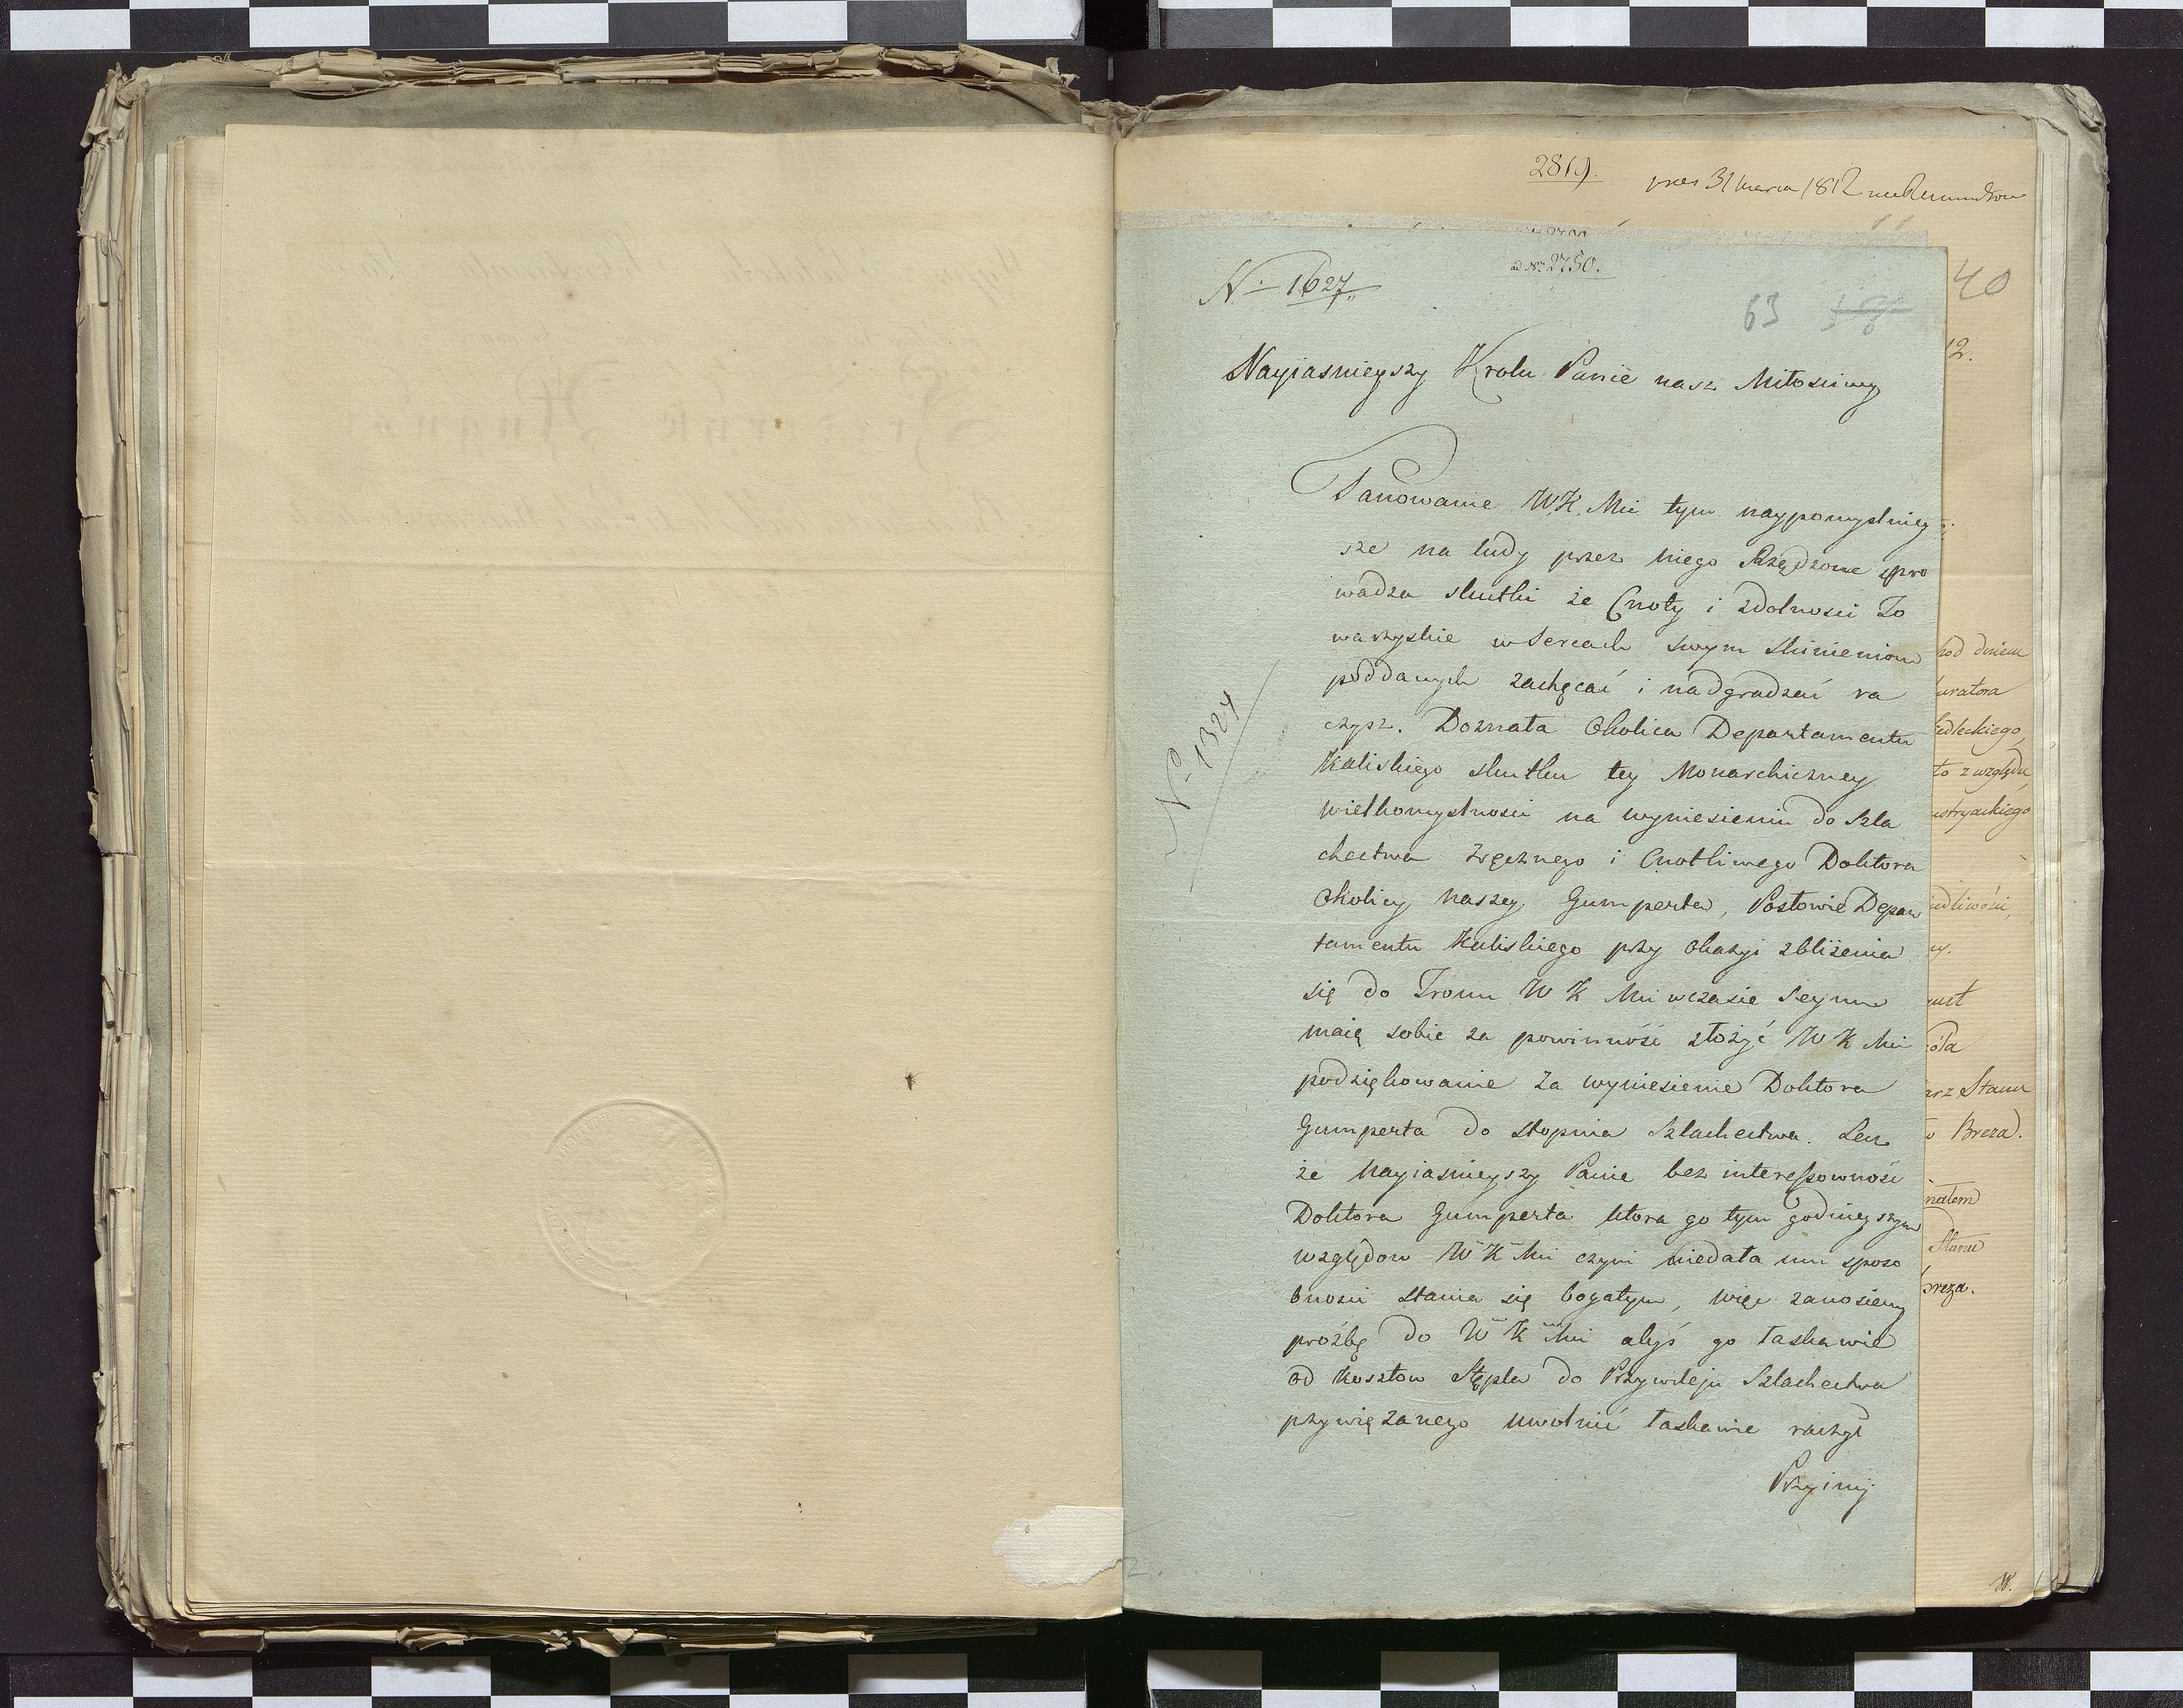 2819.
pres 31 marca 1812
ad No 2750.
N. 1627,,
63
40
12.
Nayiasnieyszy Krolu Panie nasz Miłosciwy
Panowanie W.K. Mci tym naypomyslniey
sze na ludy przez niego Rządzone spro
wadza skutki że Cnoty i zdolnosci To
warzyskie w Sercach swym skinieniom
poddanych zachęcać i nadgradzać ra
czysz. Doznała okolica Departamentu
Kaliskiego skutku tey Monarchiczney
wielkomyslnosci na wyniesieniu do Szla
chectwa zręcznego i Cnotliwego Doktora
Okolicy naszey Gumperta, Posłowie Depar
tamentu Kaliskiego przy okazyi zbliżenia
się do Tronu W K Mci w czasie Seymu
maią sobie za powinność złożyć W K Mci
podziękowanie za wyniesienie Doktora
Gumperta do stopnia Szlachectwa. Lecz
że Nayiasnieyszy Panie bez interessowność
Doktora Gumperta ktora go tym godnieyszym
względow W K Mci czyni niedała mu sposo
bnosci stania się bogatym, więc zanosiemy
proźbę do W K Mci abyś go łaskawie
od kosztow Stępla do Przywileju Szlachectwa
przywiązanego uwolnić łaskawie raczył
Przyimij
N. 1324
hod dniem
uratora
iedleckiego,
to z względu
ustryackiego
iedliwości,
ny.
ust
óla
arz Stanu
w Breza.
nałem
Stanu
Breza.
W.